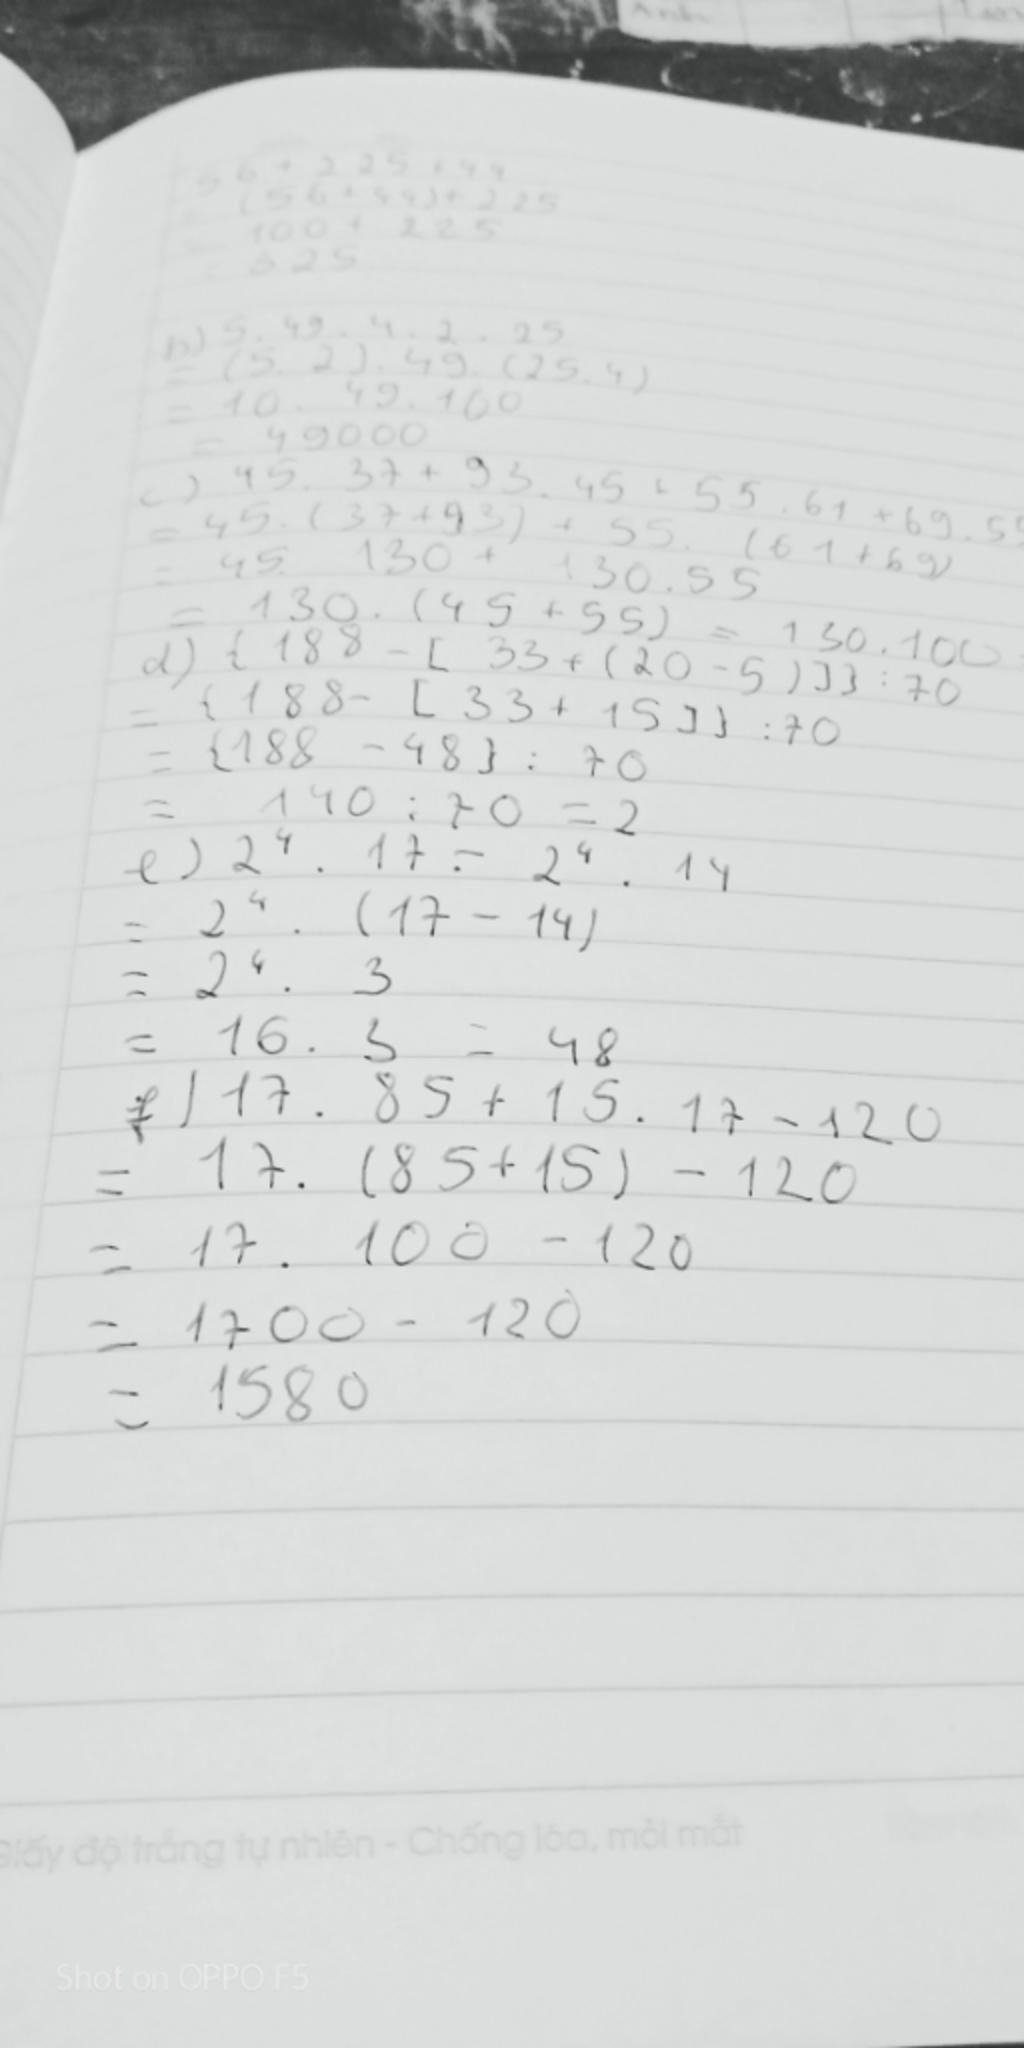 Anh
56 + 225 + 44
= (56 + 44) + 225
= 100 + 225
= 325
b) 5. 49. 4. 2. 25
= (5. 2). 49. (25. 4)
= 10. 49. 100
= 49000
c) 45. 37 + 93. 45 + 55. 61 + 69. 55
= 45. (37 + 93) + 55. (61 + 69)
= 45. 130 + 130. 55
= 130. (45 + 55) = 130. 100
d) { 188 - [ 33 + (20 - 5) ] } : 70
= { 188 - [ 33 + 15 ] } : 70
= {188 - 48} : 70
= 140 : 70 = 2
e) 2⁴. 17 - 2⁴. 14
= 2⁴. (17 - 14)
= 2⁴. 3
= 16. 3 = 48
f) 17. 85 + 15. 17 - 120
= 17. (85 + 15) - 120
= 17. 100 - 120
= 1700 - 120
= 1580
Giấy độ trắng tự nhiên - Chống lóa, mỏi mắt
Shot on OPPO F5